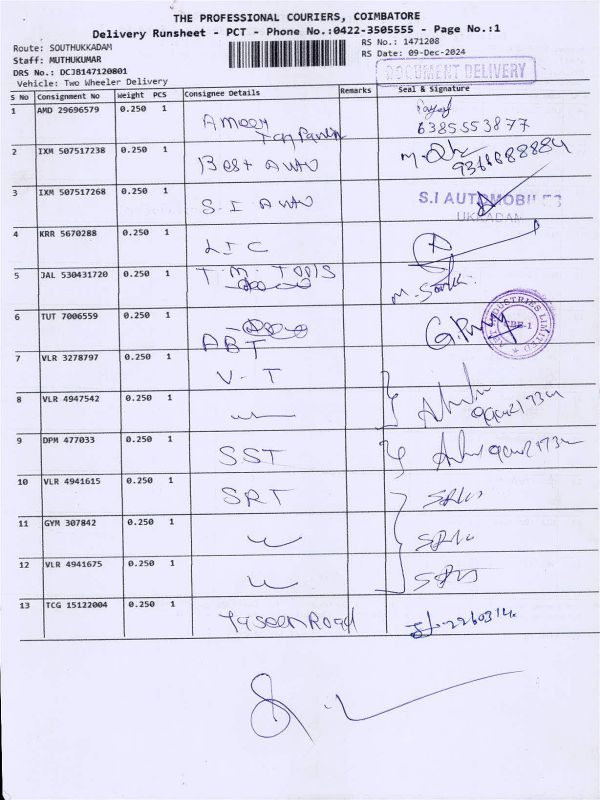 THE PROFESSIONAL COURIERS, COIMBATORE
Delivery Runsheet - PCT - Phone No.:0422-3505555 - Page No.:1
Route: SOUTHUKKADAM
RS No.: 1471208
Staff: MUTHUKUMAR
RS Date: 09-Dec-2024
DRS No.: DCJB147120801
Vehicle: Two Wheeler Delivery
DOCUMENT DELIVERY
S No Consignment No Weight PCS Consignee Details Remarks Seal & Signature
1 AMD 29696579 0.250 1 Ameer
6385553877
2 IXM 507517238 0.250 1 Best Auto
3 IXM 507517268 0.250 1 S.I Auto S.I AUTOMOBILES
UKKADAM
4 KRR 5670288 0.250 1 LIC
5 JAL 530431720 0.250 1 T.M. Tools
6 TUT 7006559 0.250 1 ABT
7 VLR 3278797 0.250 1 V-T
8 VLR 4947542 0.250 1
9 DPM 477033 0.250 1 SST
10 VLR 4941615 0.250 1 SRT
11 GYM 307842 0.250 1
12 VLR 4941675 0.250 1
13 TCG 15122004 0.250 1 Yaseen Road